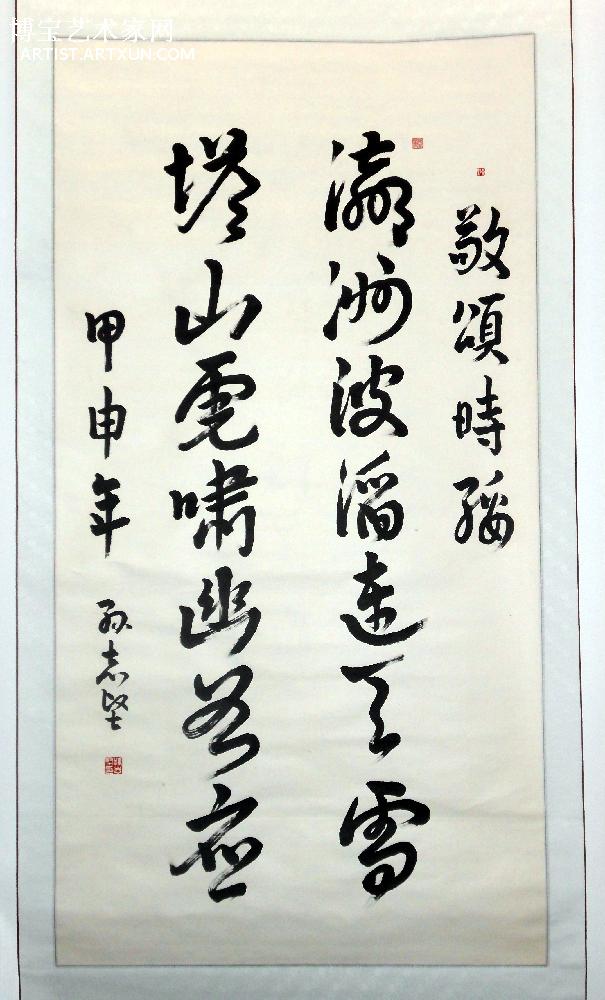 博宝艺术家网
ARTIST.ARTXUN.COM
敬頌時綏
瀛洲波滔連天雪
塔山虎嘯幽谷应
甲申年
孙志坚